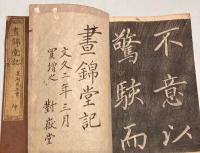 晝錦堂記
不意以
驚駭而
晝錦堂記
文久二年三月
買增之
對嶽堂